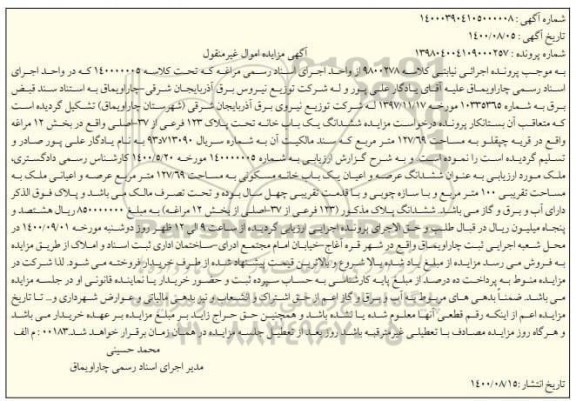 شماره آگهی : ۱۴۰۰۰۳۹۰۴۱۰۵۰۰۰۰۰۸
تاریخ آگهی : ۱۴۰۰/۰۸/۰۵
شماره پرونده : ۱۳۹۸۰۴۰۰۴۱۰۹۰۰۰۲۵۷
آگهی مزایده اموال غیرمنقول
به موجب پرونده اجرائی نیابتی کلاسه ۹۸۰۰۲۷۸ از واحد اجرای اسناد رسمی مراغه که تحت کلاسه ۱۴۰۰۰۰۰۵ که در واحد اجرای
اسناد رسمی چاراویماق علیه آقای یادگار علی پور و له شرکت توزیع نیروس برق آذربایجان شرقی-چاراویماق به استناد سند قبض
برق به شماره ۱۰۳۳۵۳۶۵ مورخه ۱۳۹۷/۱۱/۱۷ له شرکت توزیع نیروی برق آذربایجان شرقی (شهرستان چاراویماق) تشکیل گردیده است
که متعاقب آن بستانکار پرونده درخواست مزایده ششدانگ یک باب خانه تحت پلاک ۱۲۳ فرعی از ۳۷-اصلی واقع در بخش ۱۲ مراغه
واقع در قریه چپقلو به مساحت ۱۲۷/۶۹ متر مربع که سند مالکیت آن به شماره سریال ۹۳د۷۱۳۰۹۰ به نام یادگار علی پور صادر و
تسلیم گردیده است را نموده است. و به شرح گزارش ارزیابی به شماره ۱۴۰۰۰۰۰۵ مورخه ۱۴۰۰/۵/۲۰ کارشناس رسمی دادگستری،
ملک مورد ارزیابی به عنوان ششدانگ عرصه و اعیان یک باب خانه مسکونی به مساحت ۱۲۷/۶۹ متر مربع عرصه و اعیانی ملک به
مساحت تقریبی ۱۰۰ متر مربع و با سازه چوبی و با قدمت تقریبی چهل سال بوده و تحت تصرف مالک می باشد و پلاک فوق الذکر
دارای آب و برق و گاز می باشد. ششدانگ پلاک مذکور (۱۲۳ فرعی از ۳۷-اصلی از بخش ۱۲ مراغه) به مبلغ ۸۵۰۰۰۰۰۰۰ ریال هشتصد و
پنجاه میلیون ریال در قبال طلب و حق الاجرای پرونده اجرایی ارزیابی گردیده از ساعت ۹ الی ۱۲ ظهر روز دوشنبه مورخه ۱۴۰۰/۰۹/۰۱ در
محل شعبه اجرایی ثبت چاراویماق واقع در شهر قره آغاج-خیابان امام مجتمع ادرای-ساختمان اداری ثبت اسناد و املاک از طریق مزایده
به فروش می رسد مزایده از مبلغ یاد شده بالا شروع و بالاترین قیمت پیشنهاد شده از طرف خریدار فروخته می شود. لذا شرکت در
مزایده منوط به پرداخت ده درصد از مبلغ پایه کارشناسی به حساب سپرده ثبت و حضور خریدار یا نماینده قانونی او در جلسه مزایده
می باشد. ضمناً بدهی های مربوطه به آب و برق و گاز اعم از حق اشتراک و انشعاب و نیز بدهی مالیاتی و عوارض شهرداری و.. تا تاریخ
مزایده اعم از اینکه رقم قطعی آنها معلوم شده یا نشده باشد و همچنین حق حراج زاید بر مبلغ مزایده بر عهده خریدار می باشد
و هرگاه روز مزایده مصادف با تعطیلی غیرمترقبه باشد روز بعد از تعطیل جلسه مزایده در همان زمان برقرار خواهد شد.۰۰۱۸۳: م الف
محمد حسینی
مدیر اجرای اسناد رسمی چاراویماق
تاریخ انتشار: ۱۴۰۰/۰۸/۱۵